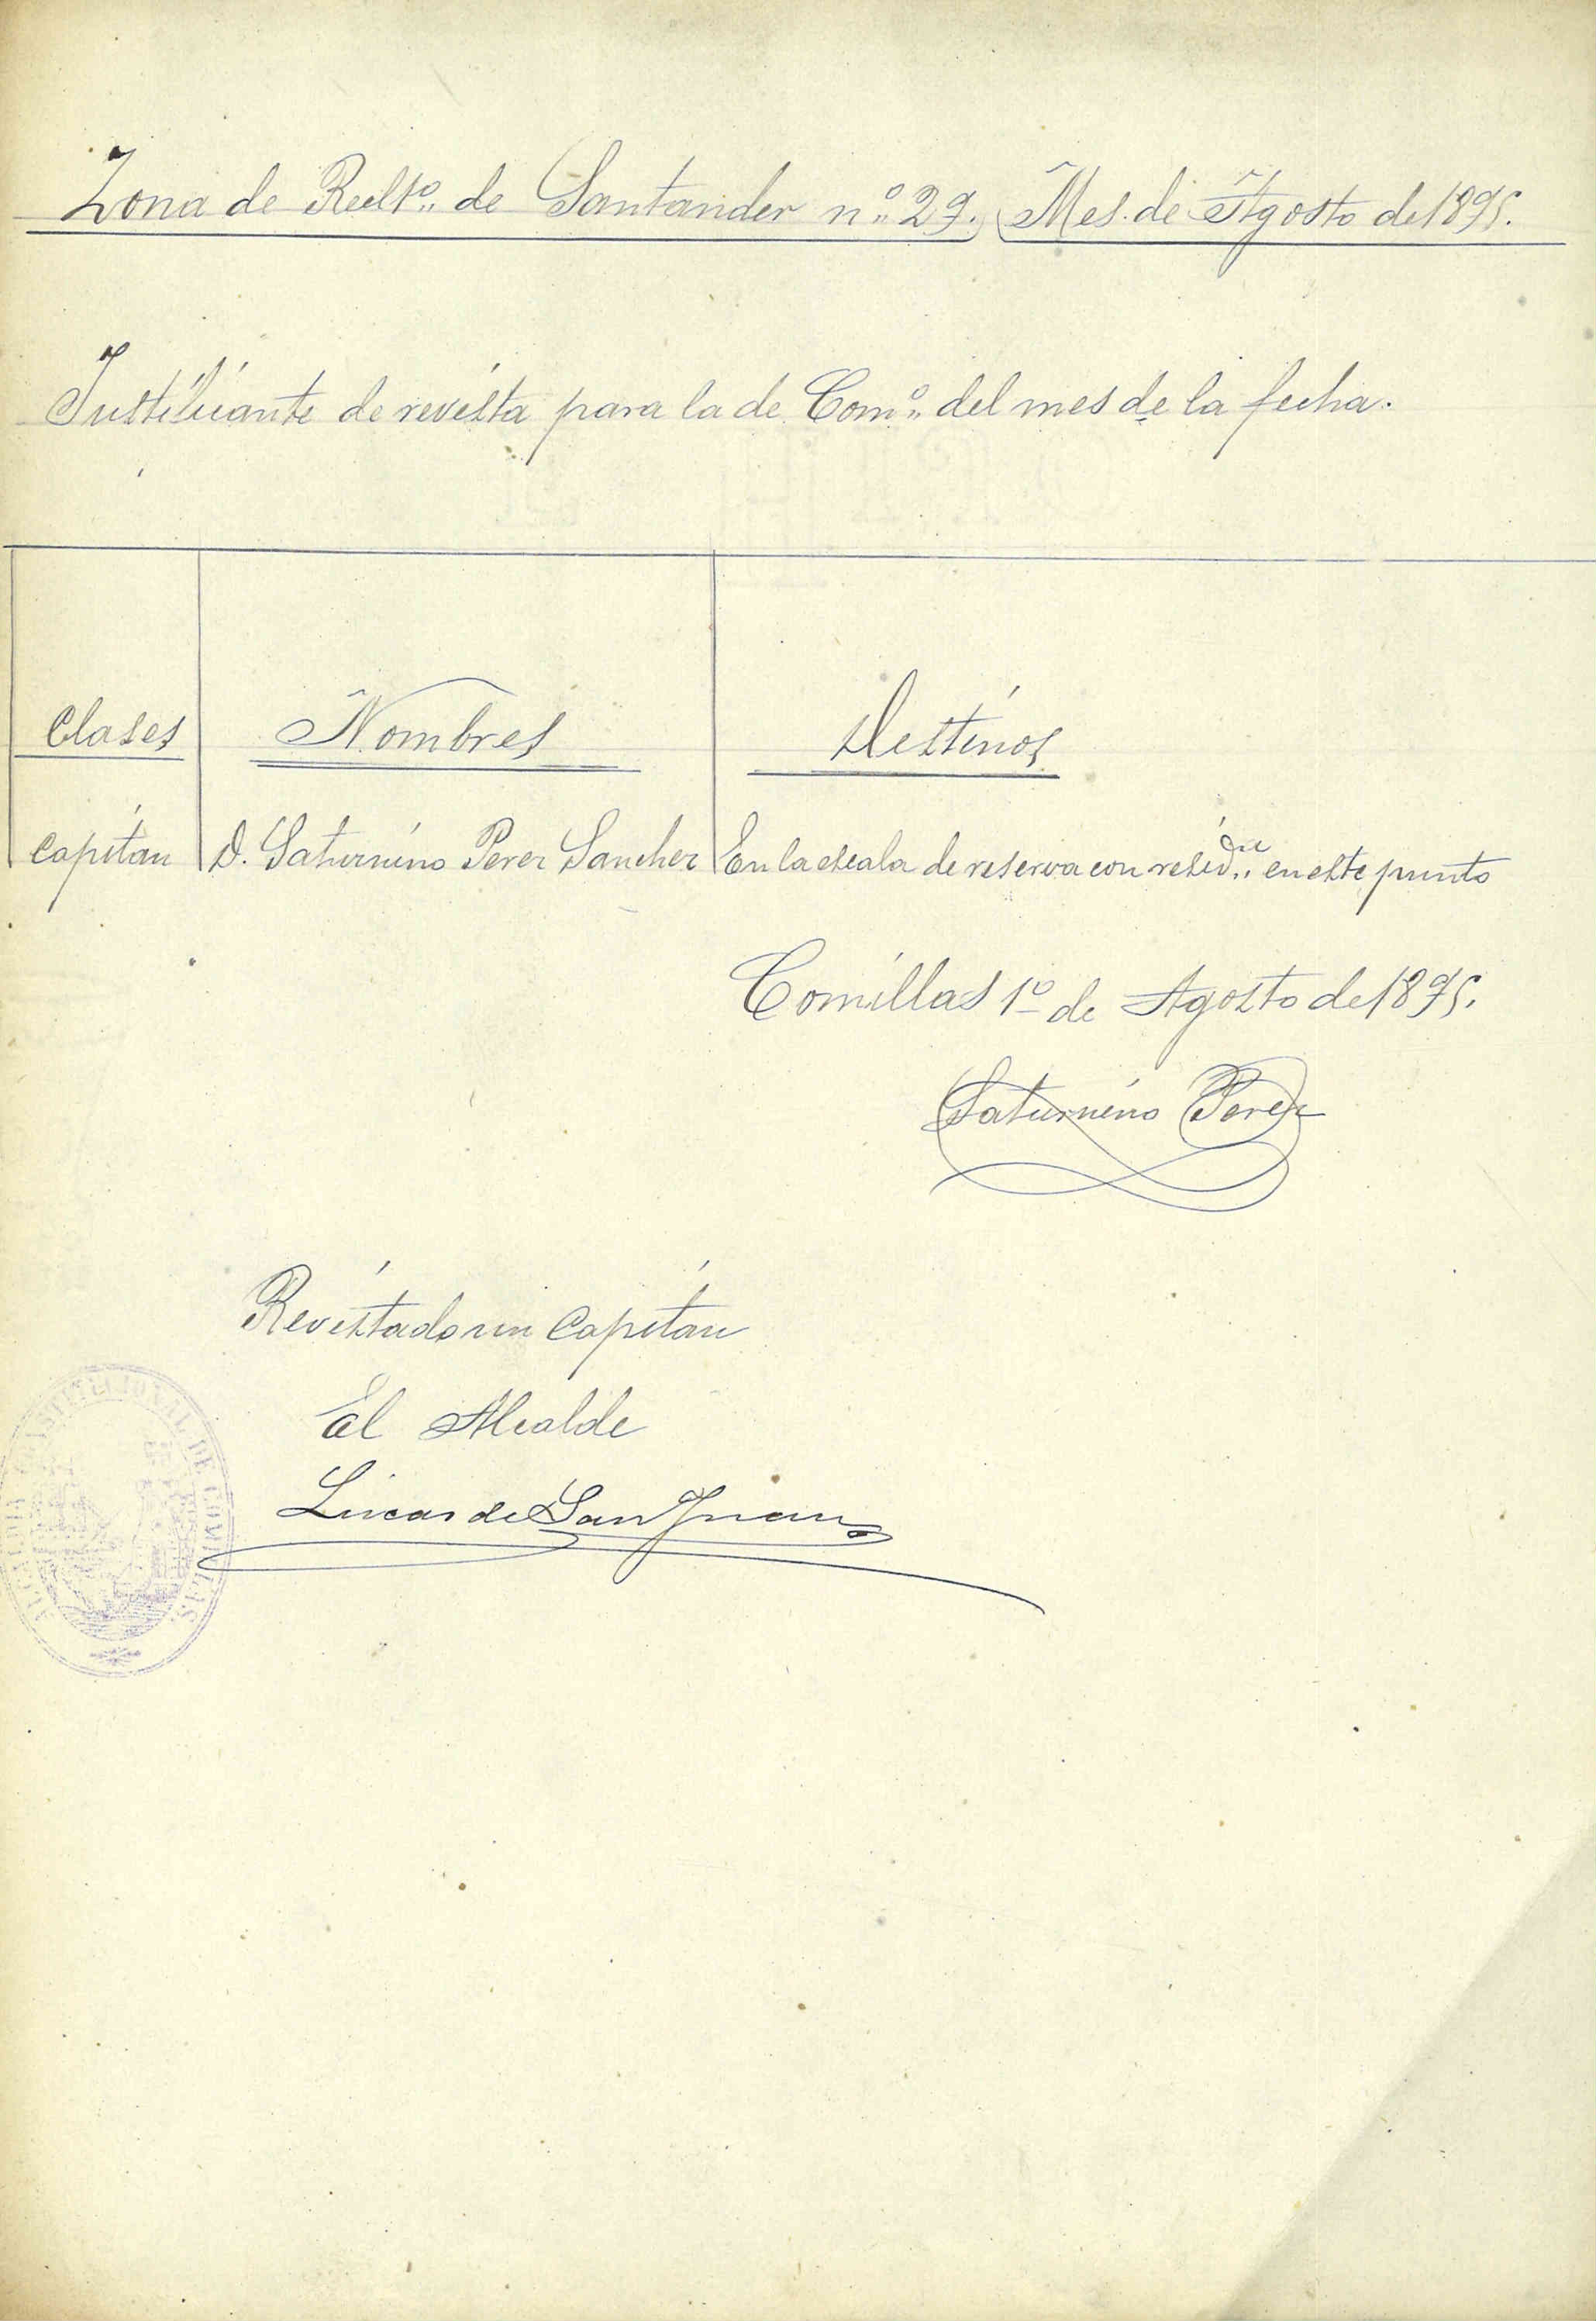 Zona de Reclto. de Santander no. 29. Mes de Agosto de 1895.
Justificante de revista para la de Como. del mes de la fecha.
Clases Nombres Destinos
Capitan D. Saturnino Perez Sanchez En la escala de reserva con residca. en este punto
Comillas 1o de Agosto de 1895.
Saturnino Perez
Revistado un Capitan
El Alcalde
Lucas de San Juan
ALCALDIA CONSTITUCIONAL DE COMILLAS